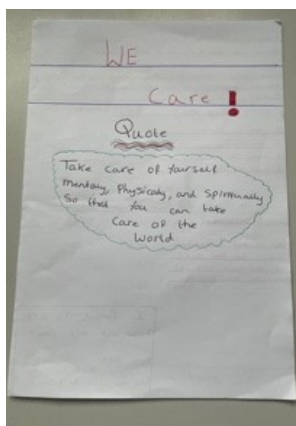 WE
Care!
Quote
Take care of Yourself
mentaly, Physicaly, and Spiritually
So that You can take
Care of the
World